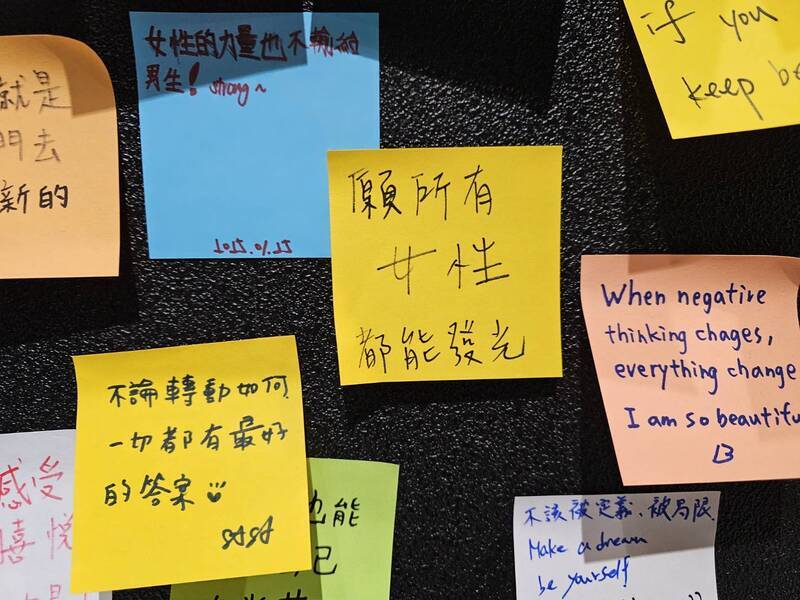 就是
門去
新的
女性的力量也不輸給
男生! strong~
if you
keep be
願所有
女性
都能發光
When negative
thinking chages,
everything change
I am so beautifu
不論轉動如何
一切都有最好
的答案
感受
喜悅
也能
己
不該被定義、被局限.
Make a dream
be yourself